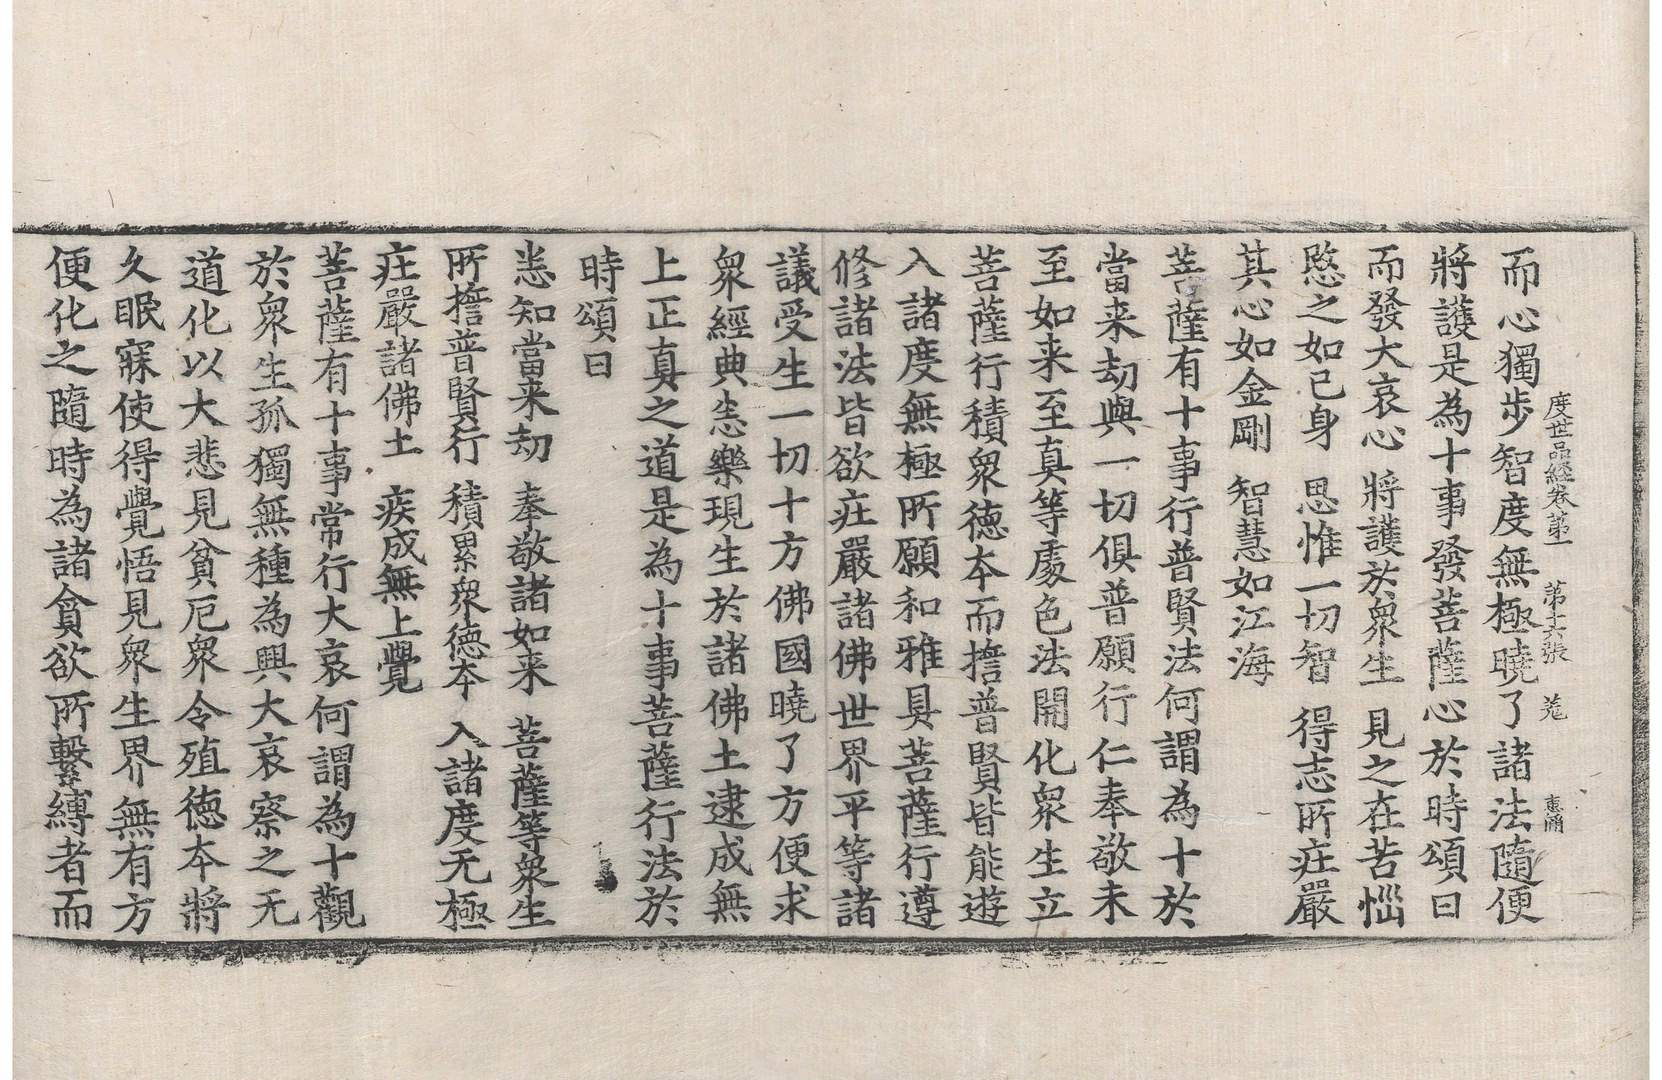 度世品經卷第一 第十六張 羗 惠涌
而心獨步智度無極曉了諸法隨便
將護是為十事發菩薩心於時頌曰
而發大哀心 將護於衆生 見之在苦惱
愍之如己身 思惟一切智 得志所莊嚴
其心如金剛 智慧如江海
菩薩有十事行普賢法何謂為十於
當来劫與一切俱普願行仁奉敬未
至如来至真等處色法開化衆生立
菩薩行積衆德本而擔普賢皆能遊
入諸度無極所願和雅具菩薩行遵
修諸法皆欲莊嚴諸佛世界平等諸
議受生一切十方佛國曉了方便求
衆經典恣樂現生於諸佛土逮成無
上正真之道是為十事菩薩行法於
時頌曰
悉知當来劫 奉敬諸如来 菩薩等衆生
所擔普賢行 積累衆德本 入諸度无極
莊嚴諸佛土 疾成無上覺
菩薩有十事常行大哀何謂為十觀
於衆生孤獨無種為興大哀察之无
道化以大悲見貧厄衆令殖德本將
久眠寐使得覺悟見衆生界無有方
便化之隨時為諸貪欲所繫縛者而